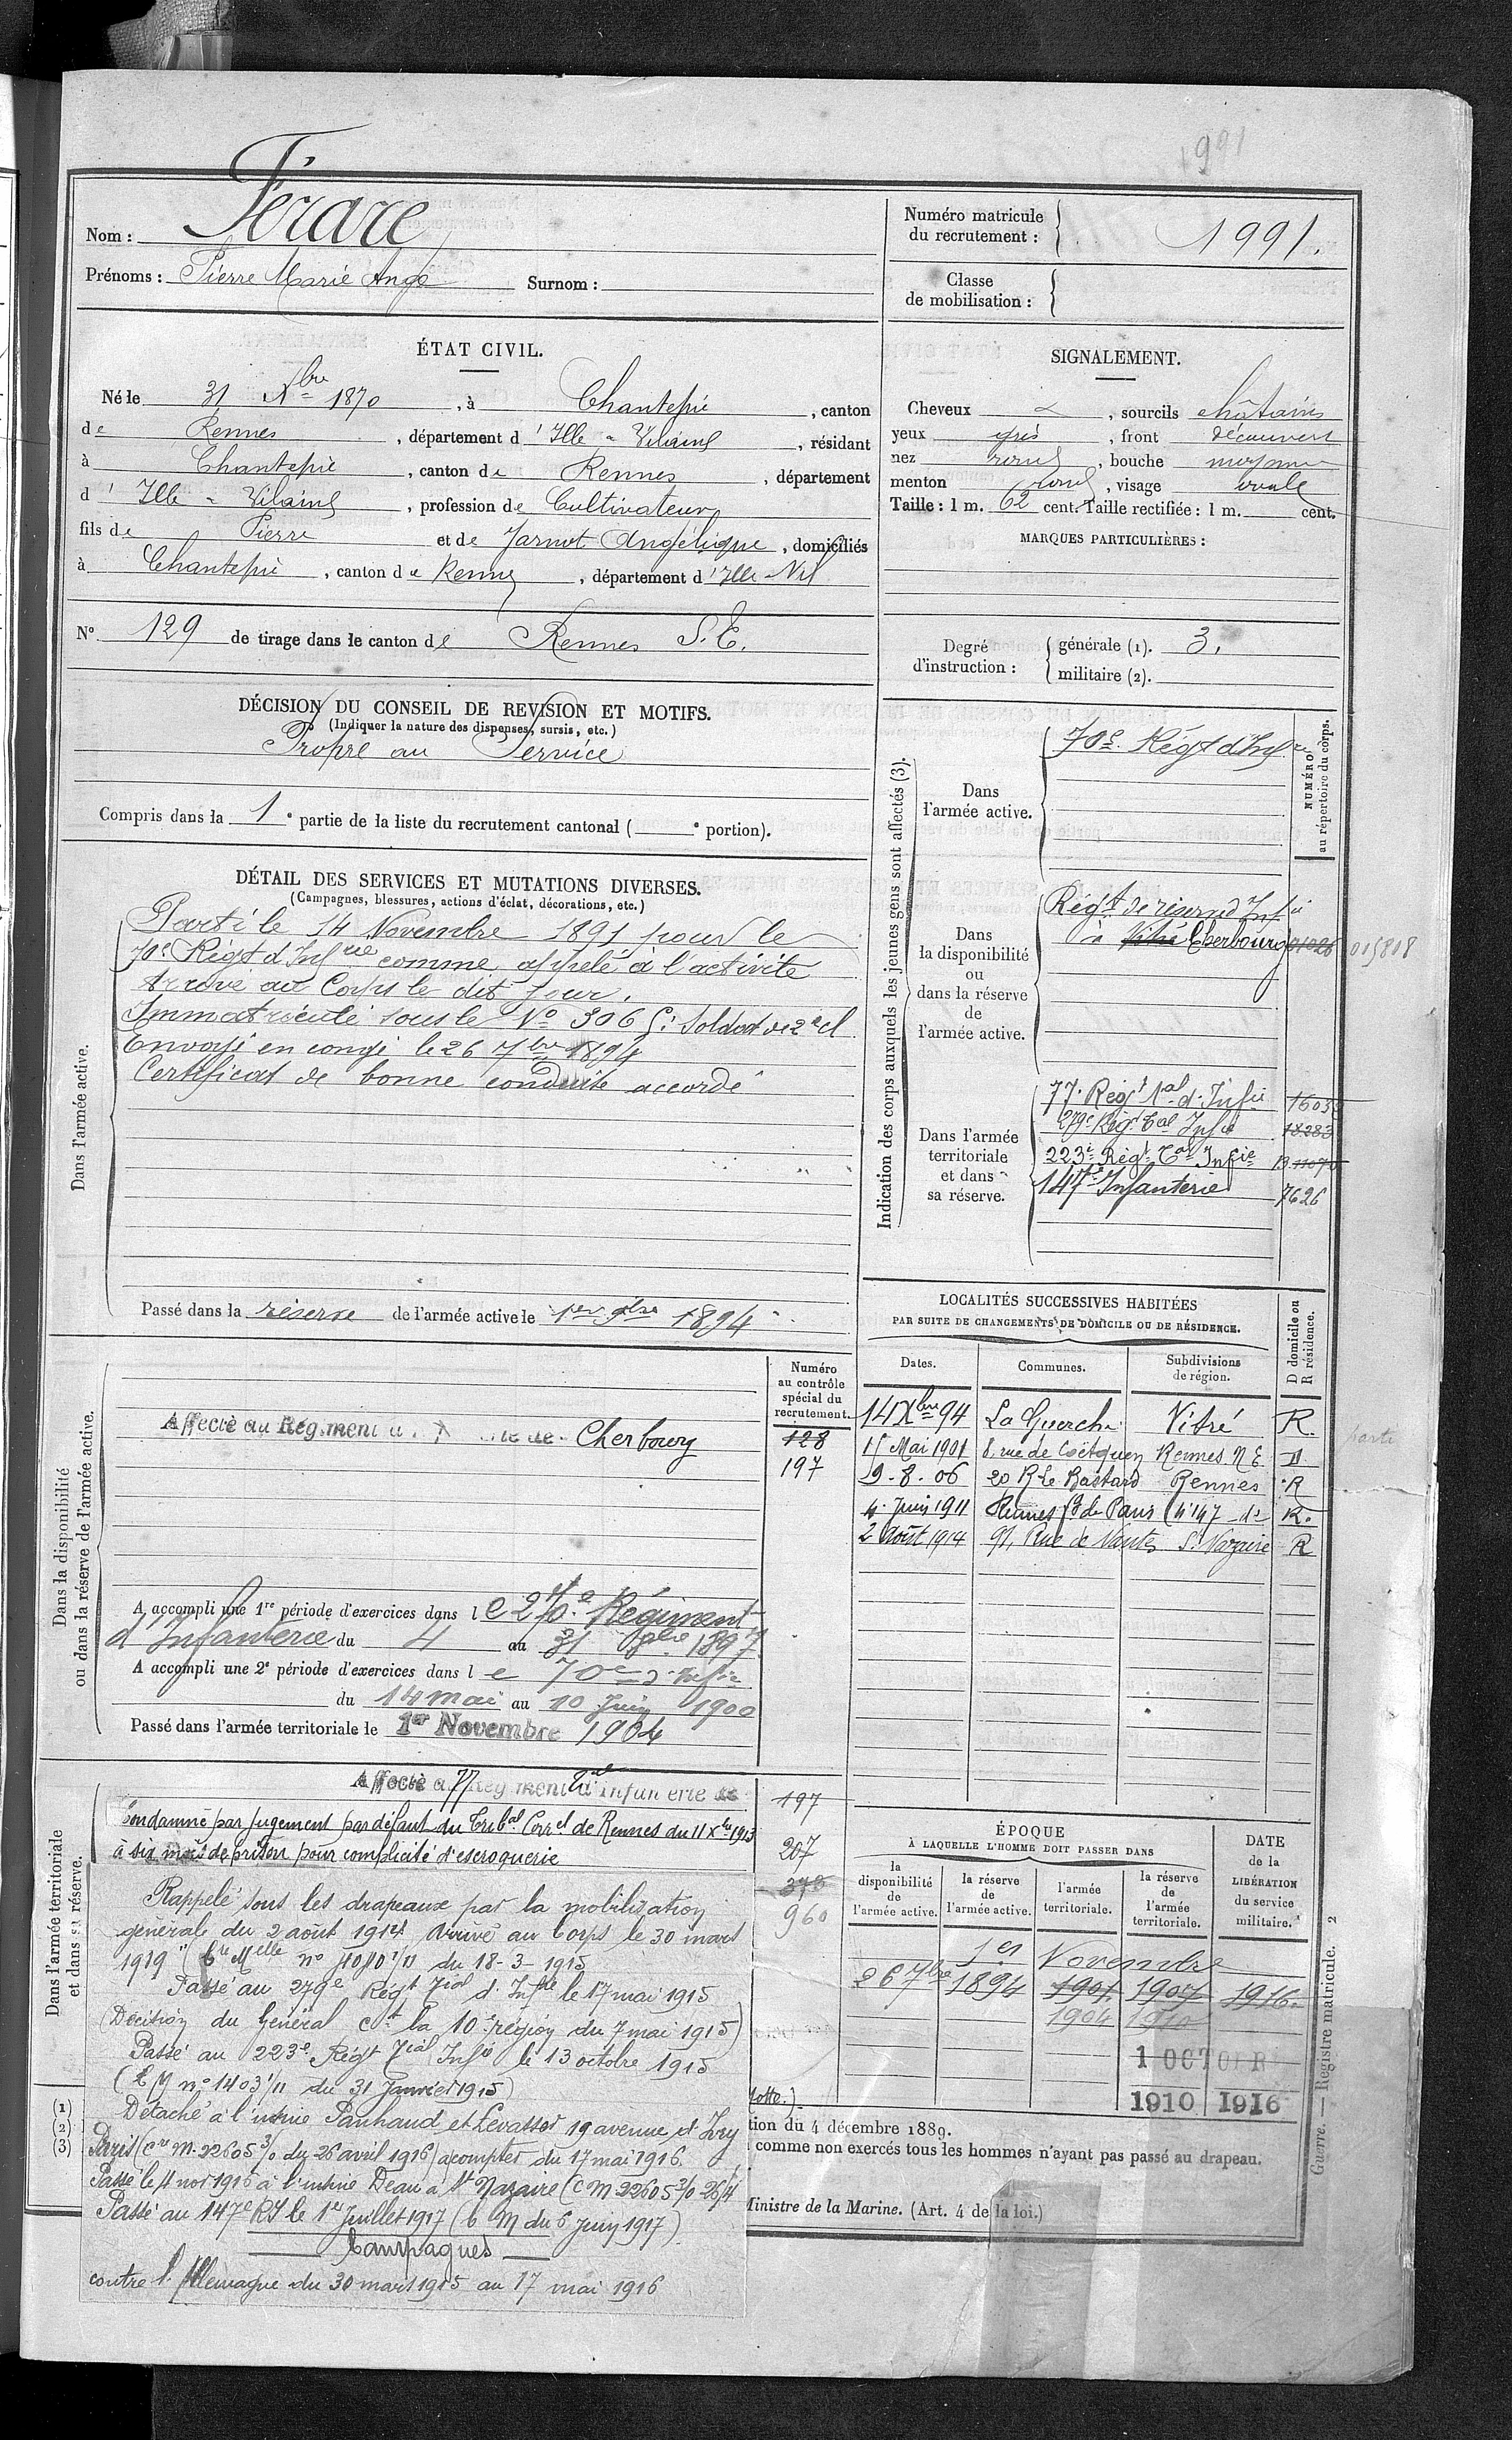 1991
Nom : Férare
Prénoms : Pierre Marie Ange Surnom :
Numéro matricule du recrutement : 1991.
Classe de mobilisation :
ÉTAT CIVIL.
Né le 31 Xbre 1870, à Chantepie, canton
de Rennes, département d'Ille-&-Vilaine, résidant
à Chantepie, canton de Rennes, département
d'Ille-&-Vilaine, profession de Cultivateur
fils de Pierre et de Jarnot Angélique, domiciliés
à Chantepie, canton de Rennes, département d'Ille-&-Vil
N° 129 de tirage dans le canton de Rennes S.E.
SIGNALEMENT.
Cheveux &, sourcils châtains
yeux gris, front découvert
nez rond, bouche moyenne
menton rond, visage ovale
Taille : 1 m. 62 cent. Taille rectifiée : 1 m. cent.
MARQUES PARTICULIÈRES :
Degré d'instruction : générale (1). 3.
militaire (2).
DÉCISION DU CONSEIL DE REVISION ET MOTIFS.
(Indiquer la nature des dispenses, sursis, etc.)
Propre au Service
Compris dans la 1e partie de la liste du recrutement cantonal ( e portion).
DÉTAIL DES SERVICES ET MUTATIONS DIVERSES.
(Campagnes, blessures, actions d'éclat, décorations, etc.)
Dans l'armée active.
Parti le 14 Novembre 1891 pour le
70e Régt d'Infrie comme appelé à l'activité
Arrivé au Corps le dit jour.
Immatriculé sous le N° 306 Soldat de 2e cl
Envoyé en congé le 26 7bre 1894
Certificat de bonne conduite accordé
Passé dans la réserve de l'armée active le 1er 9bre 1894
Indication des corps auxquels les jeunes gens sont affectés (3).
NUMÉRO au répertoire du corps.
Dans l'armée active.
70e Régt d'Infrie
Dans la disponibilité ou dans la réserve de l'armée active.
Régt de réserve d'Infie
à Vitré Cherbourg 01026 015818
Dans l'armée territoriale et dans sa réserve.
77e Régt tal d'Infie 16033
279e Régt Tal Infie 18283
223e Régt Tal Infie 13 11070
147e Infanterie 7626
LOCALITÉS SUCCESSIVES HABITÉES
PAR SUITE DE CHANGEMENTS DE DOMICILE OU DE RÉSIDENCE.
Dates. Communes. Subdivisions de région. D domicile ou R résidence.
14 Xbre 94 La Guerche Vitré R.
15 Mai 1901 8, rue de Coëtquen Rennes N E. D
9-8-06 20 R Le Bastard Rennes R
4 Juin 1911 Rennes fg de Paris (N°147 - do R.
2 Août 1914 91, Rue de Nantes St Nazaire R
Dans la disponibilité ou dans la réserve de l'armée active.
Numéro au contrôle spécial du recrutement.
Affecté au Régiment Cherbourg
128
197
A accompli une 1re période d'exercices dans le 270e Régiment
d'Infanterie du 4 au 31 8bre 1897
A accompli une 2e période d'exercices dans le 70e d'Infie
du 14 mai au 10 Juin 1900
Passé dans l'armée territoriale le 1er Novembre 1904
Dans l'armée territoriale et dans sa réserve.
Affecté au 77 Régiment Tal d'Infanterie de
197
207
378
960
Condamné par jugement par défaut du Tribal Correl de Rennes du 11 Xbre 1913
à six mois de prison pour complicité d'escroquerie
Rappelé sous les drapeaux par la mobilisation
générale du 2 août 1914 Arrivé au Corps le 30 mars
1919 Cre Melle n° du 18-3-1915
Passé au 279e Régt Tial d'Infie le 17 mai 1915
(Décision du Général Ct la 10e région du 7 mai 1915)
Passé au 223e Régt Tial Infie le 13 octobre 1915
(E M n° 1403 1/11 du 31 Janvier 1915)
Détaché à l'usine Panhaud et Levassor 19 avenue d'Ivry
Paris (Cre M. 22605 3/0 du 26 avril 1916) à compter du 17 mai 1916.
Passé le 11 nov 1916 à l'usine Deau à St Nazaire (C M 22605 3/0 26/4
Passé au 147e RI le 1er Juillet 1917 (C M du 6 Juin 1917)
Campagnes
contre l'Allemagne du 30 mars 1915 au 17 mai 1916
ÉPOQUE
À LAQUELLE L'HOMME DOIT PASSER DANS
la disponibilité de l'armée active. la réserve de l'armée active. l'armée territoriale. la réserve de l'armée territoriale.
DATE de la LIBÉRATION du service militaire.
1er Novembre
26 7bre 1894 1901 1907 1916.
1904 1910
1 OCTOBR
1910 1916
(1)
(2)
(3)
lotte.)
tion du 4 décembre 1889.
comme non exercés tous les hommes n'ayant pas passé au drapeau.
Ministre de la Marine. (Art. 4 de la loi.)
Guerre. — Registre matricule. 2